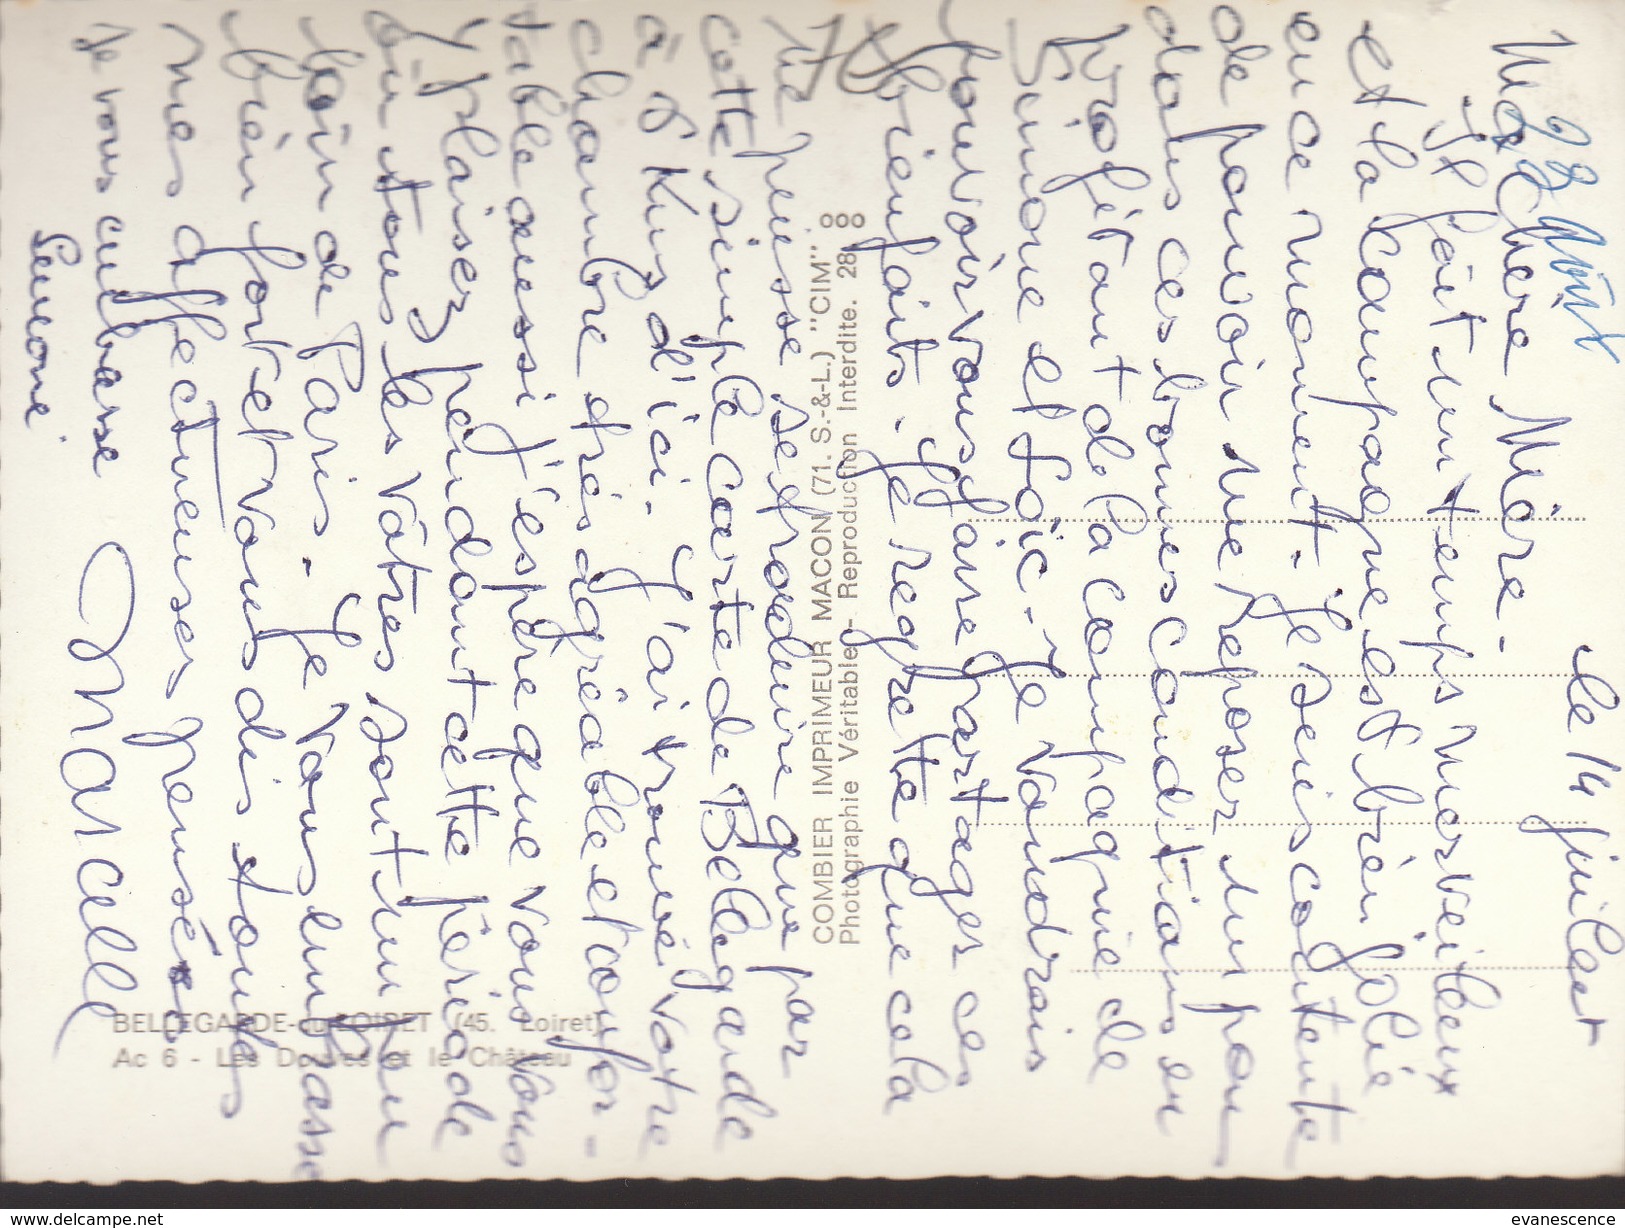 le 14 juillet
22 Août
Ma Chère Mière -
Il fait un temps merveilleux
et la campagne est bien jolie
en ce moment - Je suis contente
de pouvoir me reposer un peu
dans ces bonnes conditions en
profitant de la compagnie de
Simone et Loïc - Je voudrais
pouvoir vous faire partager ces
bienfaits. Je regrette que cela
ne puisse se traduire que par
cette simple carte de Bellegarde
à 8 Kms d'ici. J'ai trouvé votre
chambre très agréable et confor-
table aussi j'espère que vous vous
y plaisez pendant cette période
où tous les vôtres sont un peu
loin de Paris - Je vous embrasse
bien fort et vous dis toutes
mes affectueuses pensées
Marcelle
Je vous embrasse
Simone
78
COMBIER IMPRIMEUR MACON (71. S.-&-L.) "CIM"
Photographie Véritable - Reproduction Interdite. 28
BELLEGARDE-du-LOIRET (45. Loiret)
Ac 6 - Les Douves et le Château
delcampe.net
evanescence